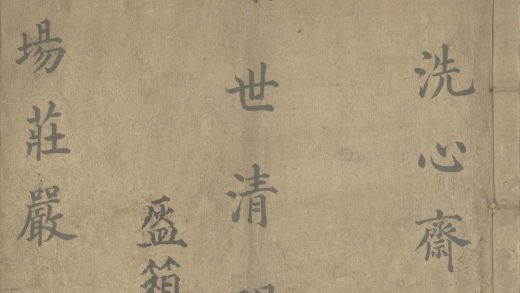 洗心齋
世清
盔箱
場莊嚴